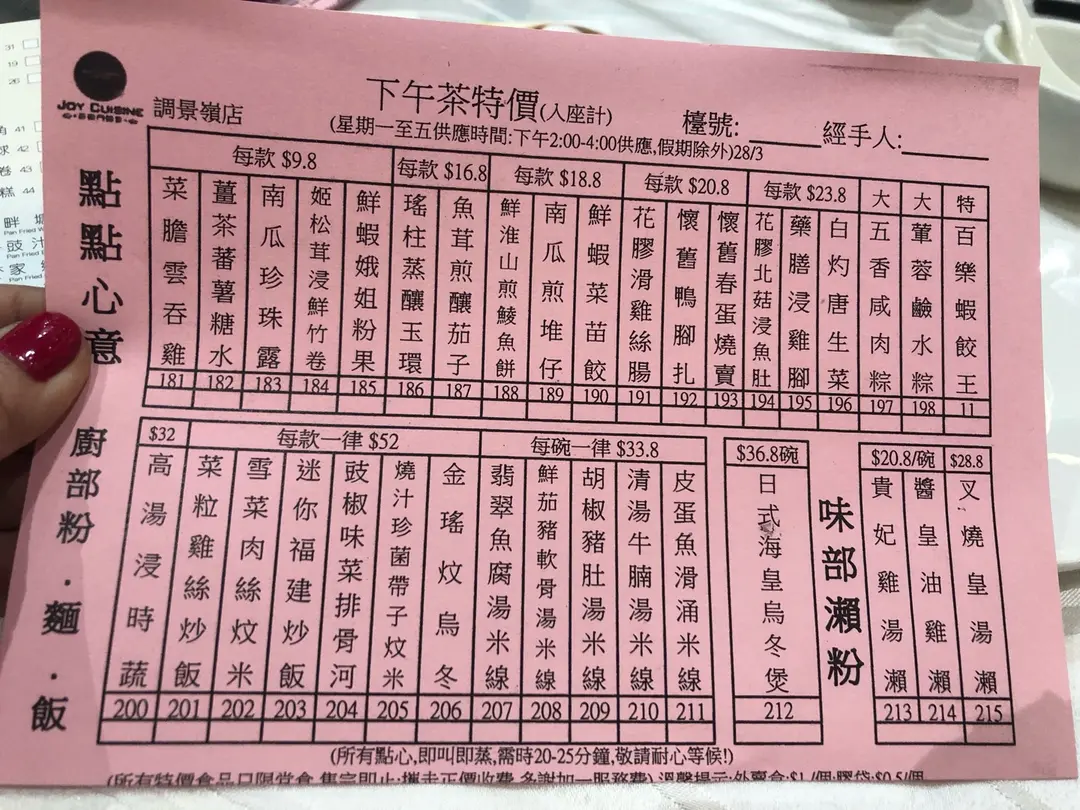 JOY CUISINE
調景嶺店
下午茶特價(入座計)
(星期一至五供應時間:下午2:00-4:00供應,假期除外)28/3
檯號:
經手人:
點點心意
每款 $9.8
菜膽雲吞雞 181
薑茶蕃薯糖水 182
南瓜珍珠露 183
姬松茸浸鮮竹卷 184
鮮蝦娥姐粉果 185
每款 $16.8
瑤柱蒸釀玉環 186
魚茸煎釀茄子 187
每款 $18.8
鮮淮山煎鯪魚餅 188
南瓜煎堆仔 189
鮮蝦菜苗餃 190
每款 $20.8
花膠滑雞絲腸 191
懷舊鴨腳扎 192
懷舊春蛋燒賣 193
每款 $23.8
花膠北菇浸魚肚 194
藥膳浸雞腳 195
白灼唐生菜 196
大
五香咸肉粽 197
大
蓉鹼水粽 198
特
百樂蝦餃王 11
廚部粉．麵．飯
$32
高湯浸時蔬 200
每款一律 $52
菜粒雞絲炒飯 201
雪菜肉絲炆米 202
迷你福建炒飯 203
豉椒味菜排骨河 204
燒汁珍菌帶子炆米 205
金瑤炆烏冬 206
每碗一律 $33.8
翡翠魚腐湯米線 207
鮮茄豬軟骨湯米線 208
胡椒豬肚湯米線 209
清湯牛腩湯米線 210
皮蛋魚滑涌米線 211
$36.8碗
日式海皇烏冬煲 212
味部瀨粉
$20.8/碗
貴妃雞湯瀨 213
醬皇油雞瀨 214
$28.8
叉燒皇湯瀨 215
(所有點心,即叫即蒸,需時20-25分鐘,敬請耐心等候!)
(所有特價食品只限堂食,售完即止;攜走正價收費,多謝加一服務費) 溫馨提示:外賣盒:$1/個;膠袋:$0.5/個
31
19
26
41
42
43
44
Pan Fried
Pan Fried